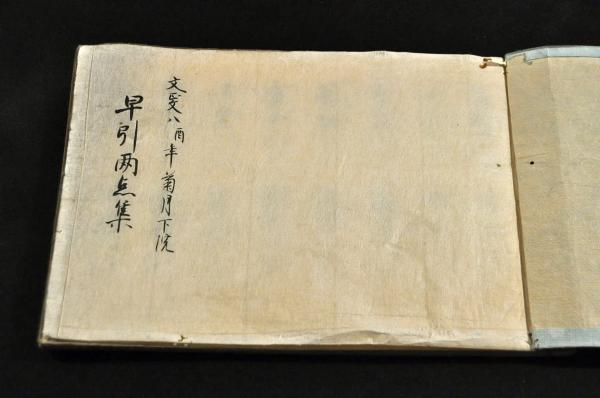 文政八酉年菊月下浣
早引两点集